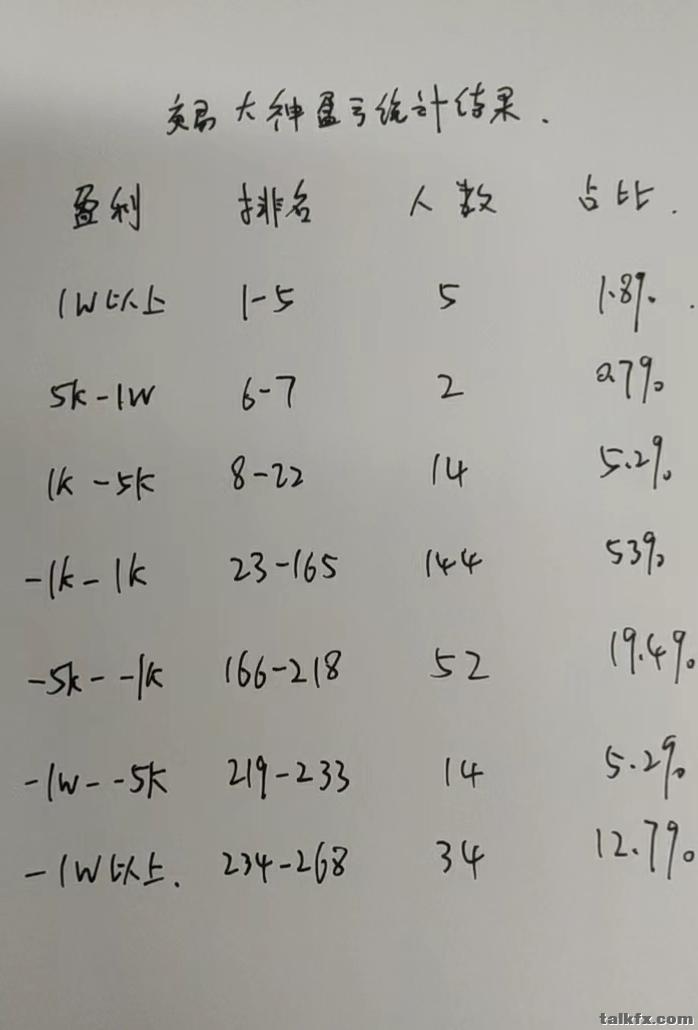 交易大神盈亏统计结果.
盈利 排名 人数 占比.
1W以上 1-5 5 1.8%.
5k-1W 6-7 2 0.7%
1k-5k 8-22 14 5.2%
-1k-1k 23-165 144 53%
-5k--1k 166-218 52 19.4%
-1W--5k 219-233 14 5.2%
-1W以上. 234-268 34 12.7%
talkfx.com